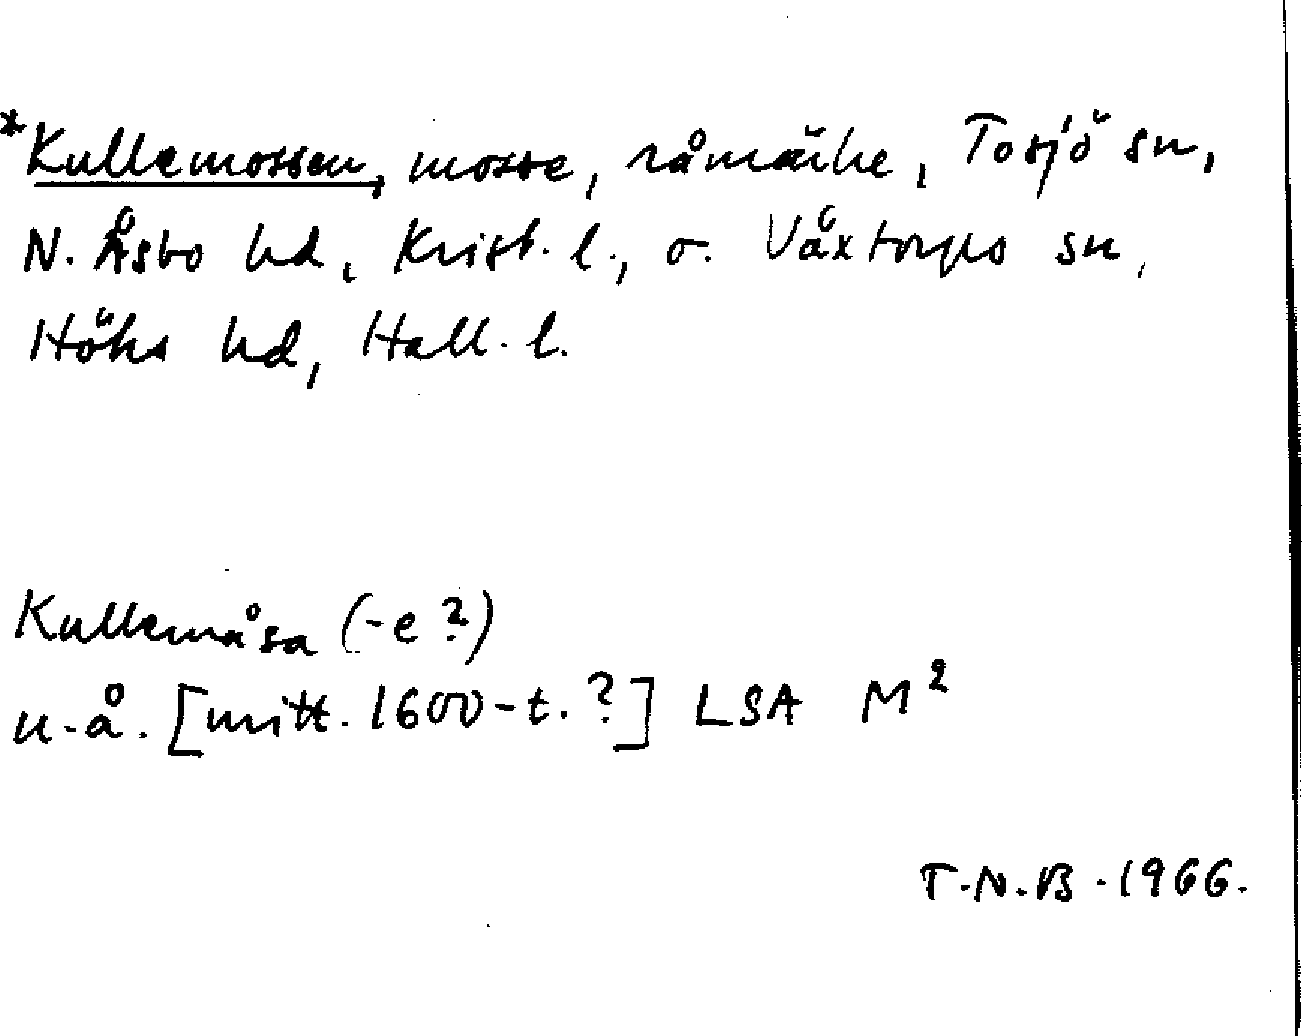 *Kullemossen, mosse, råmärke, Tosjö sn,
N. Åsbo hd, Krist. l., o. Våxtorps sn,
Höks hd, Hall. l.
Kullemåsa (-e?)
u.å. [mitt. 1600-t.?] LSA M²
T.N.B. 1966.